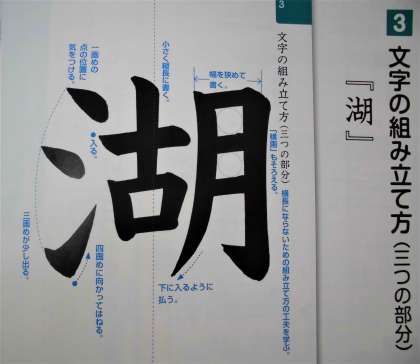 3
文字の組み立て方(三つの部分)
『湖』
3
文字の組み立て方(三つの部分)
横長にならないための組み立て方の工夫を学ぶ。
「横画」もそろえる。
幅を狭めて
書く。
小さく縦長に書く。
一画めの
点の位置に
気をつける。
入る。
湖
四画めに向かってはねる。
三画めが少し出る。
下に入るように
払う。